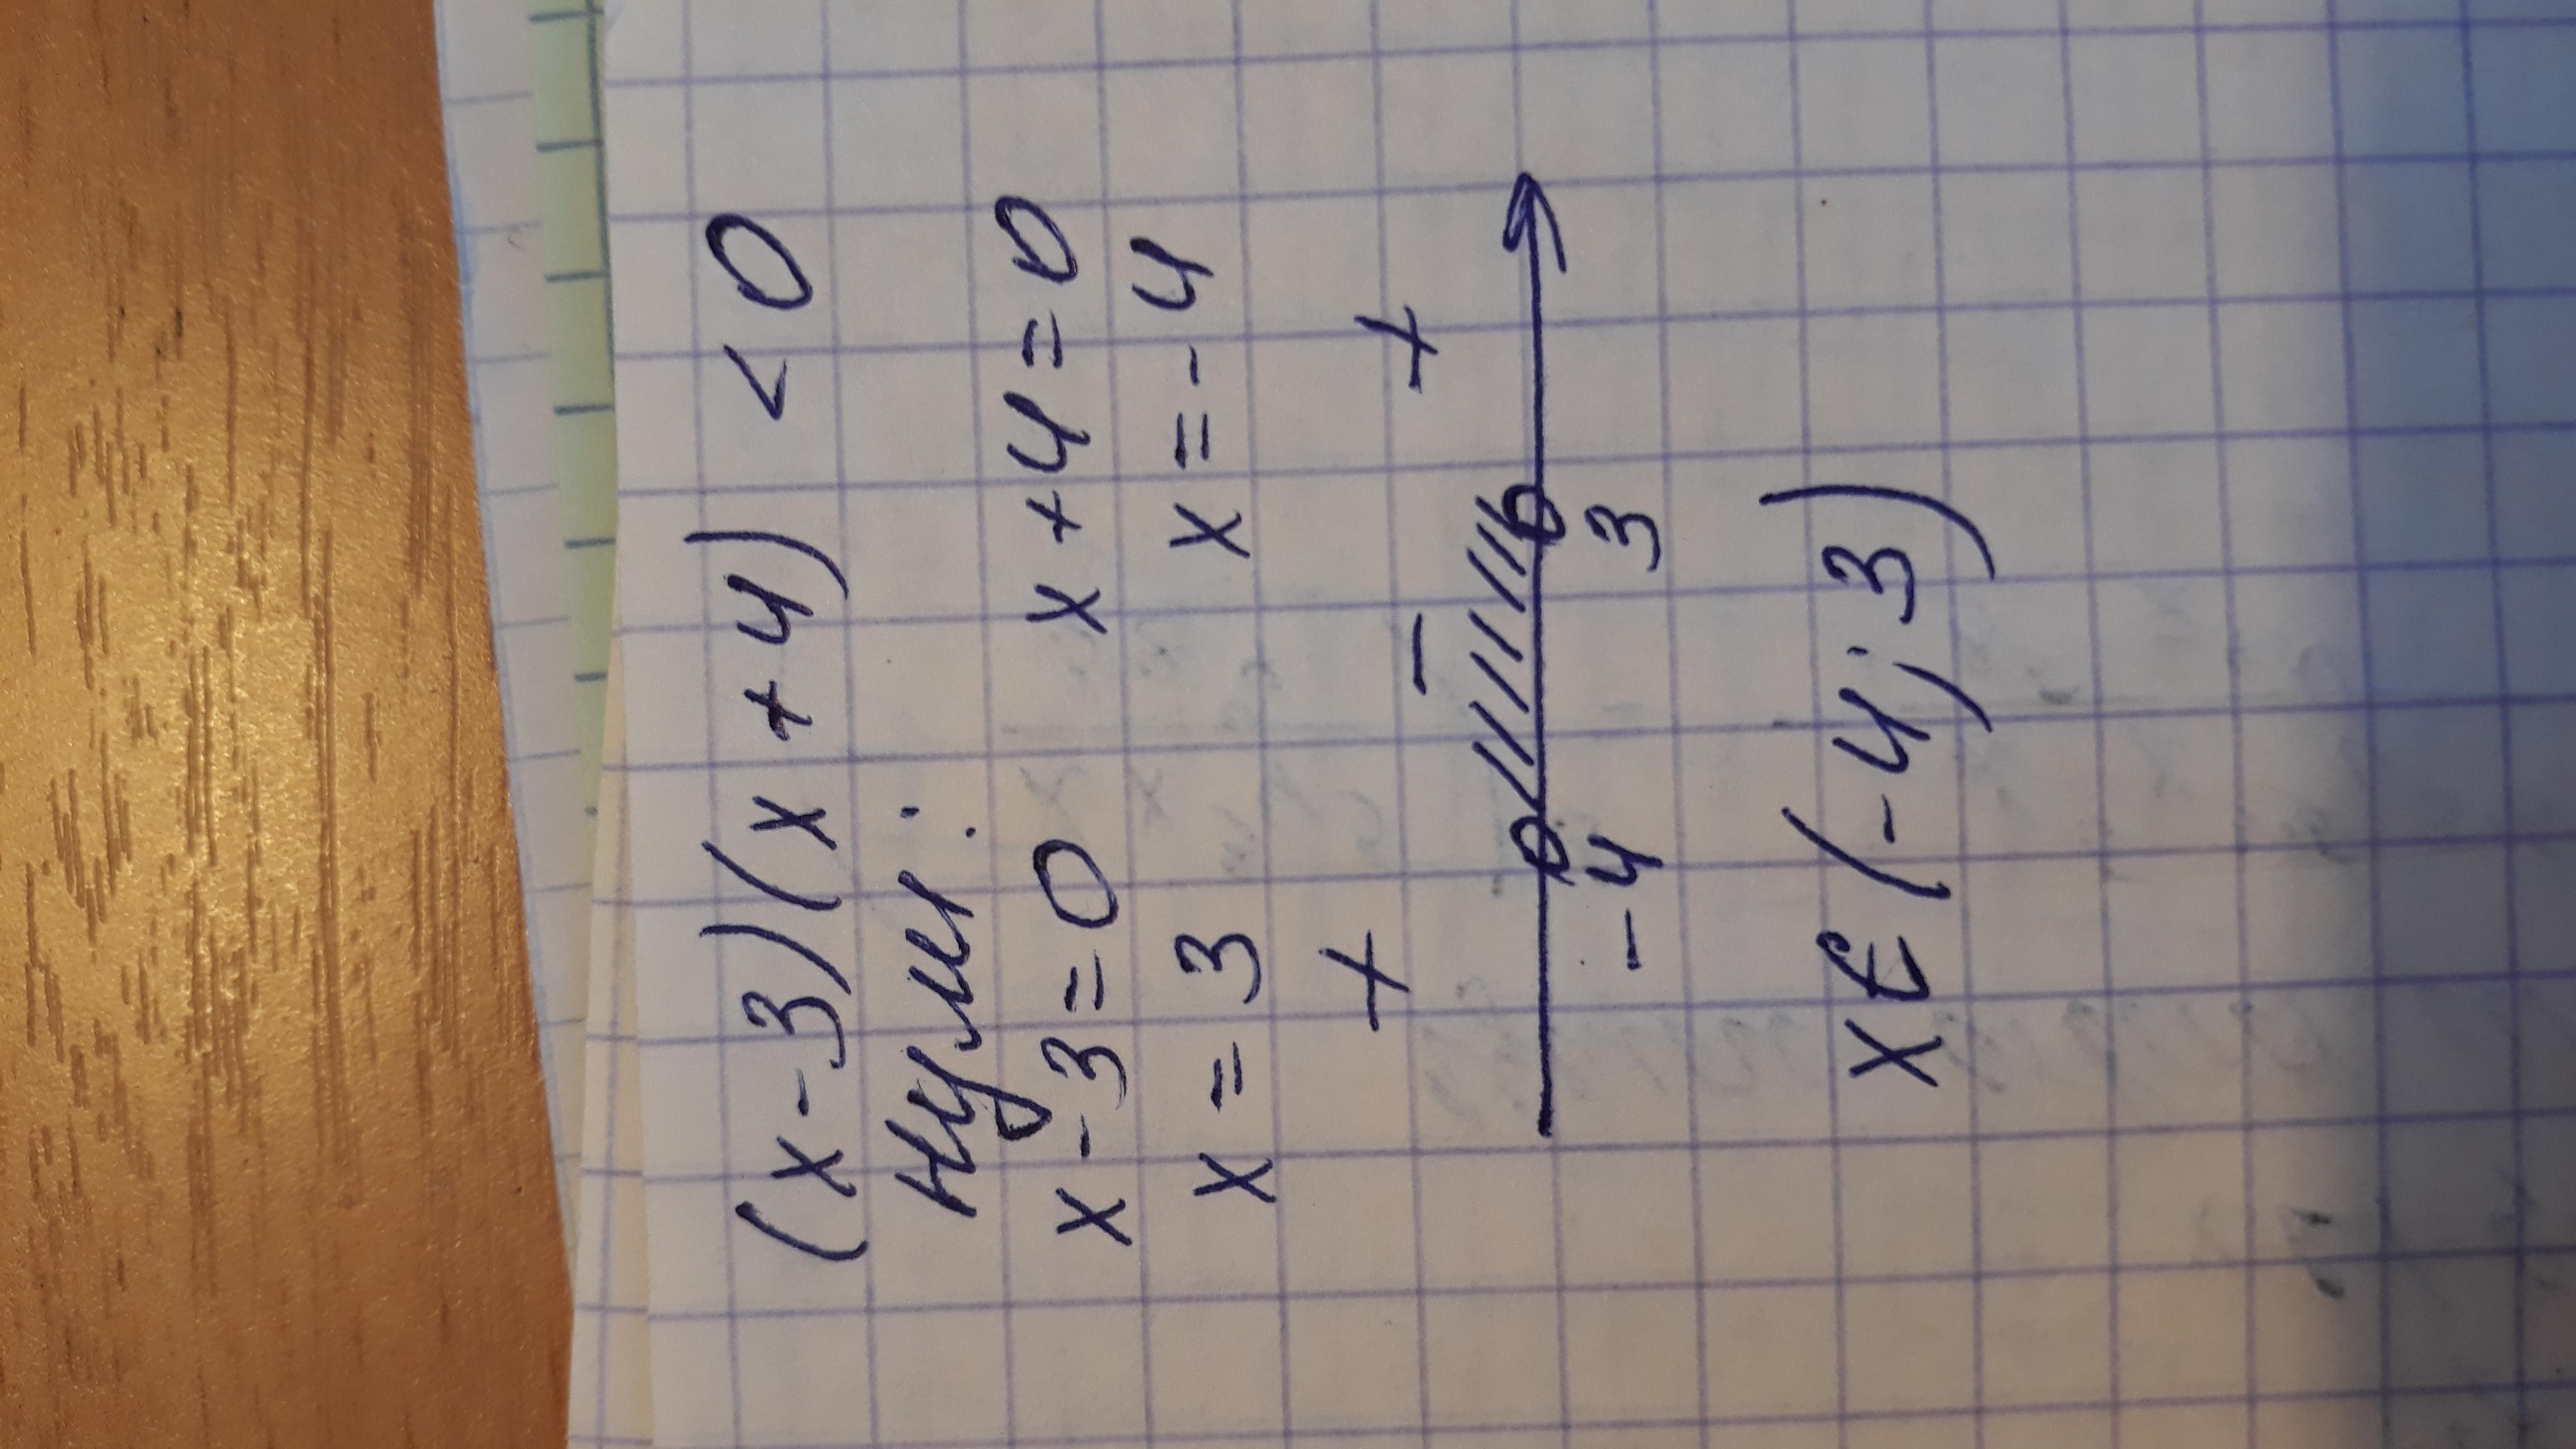 (x-3)(x+4) <0
Нули:
x-3=0 x+4=0
x=3 x=-4
+ - +
-4 3
x∈(-4;3)